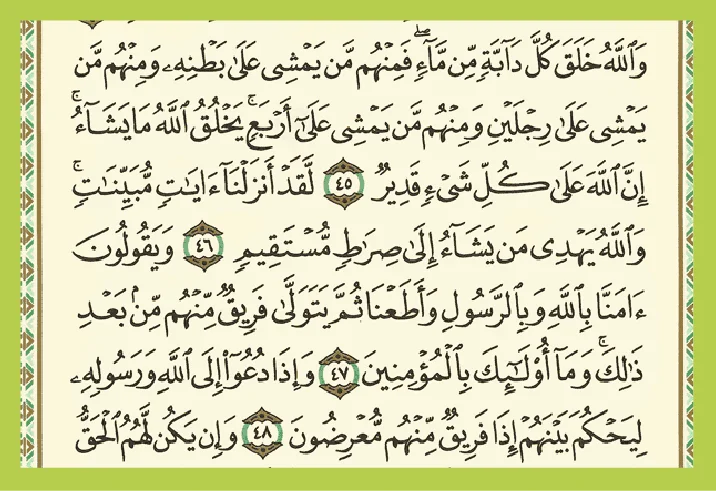 وَٱللَّهُ خَلَقَ كُلَّ دَآبَّةٍ مِّن مَّآءٍۖ فَمِنْهُم مَّن يَمْشِى عَلَىٰ بَطْنِهِۦ وَمِنْهُم مَّن
يَمْشِى عَلَىٰ رِجْلَيْنِ وَمِنْهُم مَّن يَمْشِى عَلَىٰٓ أَرْبَعٍۚ يَخْلُقُ ٱللَّهُ مَا يَشَآءُۚ
إِنَّ ٱللَّهَ عَلَىٰ كُلِّ شَىْءٍ قَدِيرٌ ٤٥ لَّقَدْ أَنزَلْنَآ ءَايَـٰتٍ مُّبَيِّنَـٰتٍۚ
وَٱللَّهُ يَهْدِى مَن يَشَآءُ إِلَىٰ صِرَٰطٍ مُّسْتَقِيمٍ ٤٦ وَيَقُولُونَ
ءَامَنَّا بِٱللَّهِ وَبِٱلرَّسُولِ وَأَطَعْنَا ثُمَّ يَتَوَلَّىٰ فَرِيقٌ مِّنْهُم مِّنۢ بَعْدِ
ذَٰلِكَۚ وَمَآ أُو۟لَـٰٓئِكَ بِٱلْمُؤْمِنِينَ ٤٧ وَإِذَا دُعُوٓا۟ إِلَى ٱللَّهِ وَرَسُولِهِۦ
لِيَحْكُمَ بَيْنَهُمْ إِذَا فَرِيقٌ مِّنْهُم مُّعْرِضُونَ ٤٨ وَإِن يَكُن لَّهُمُ ٱلْحَقُّ